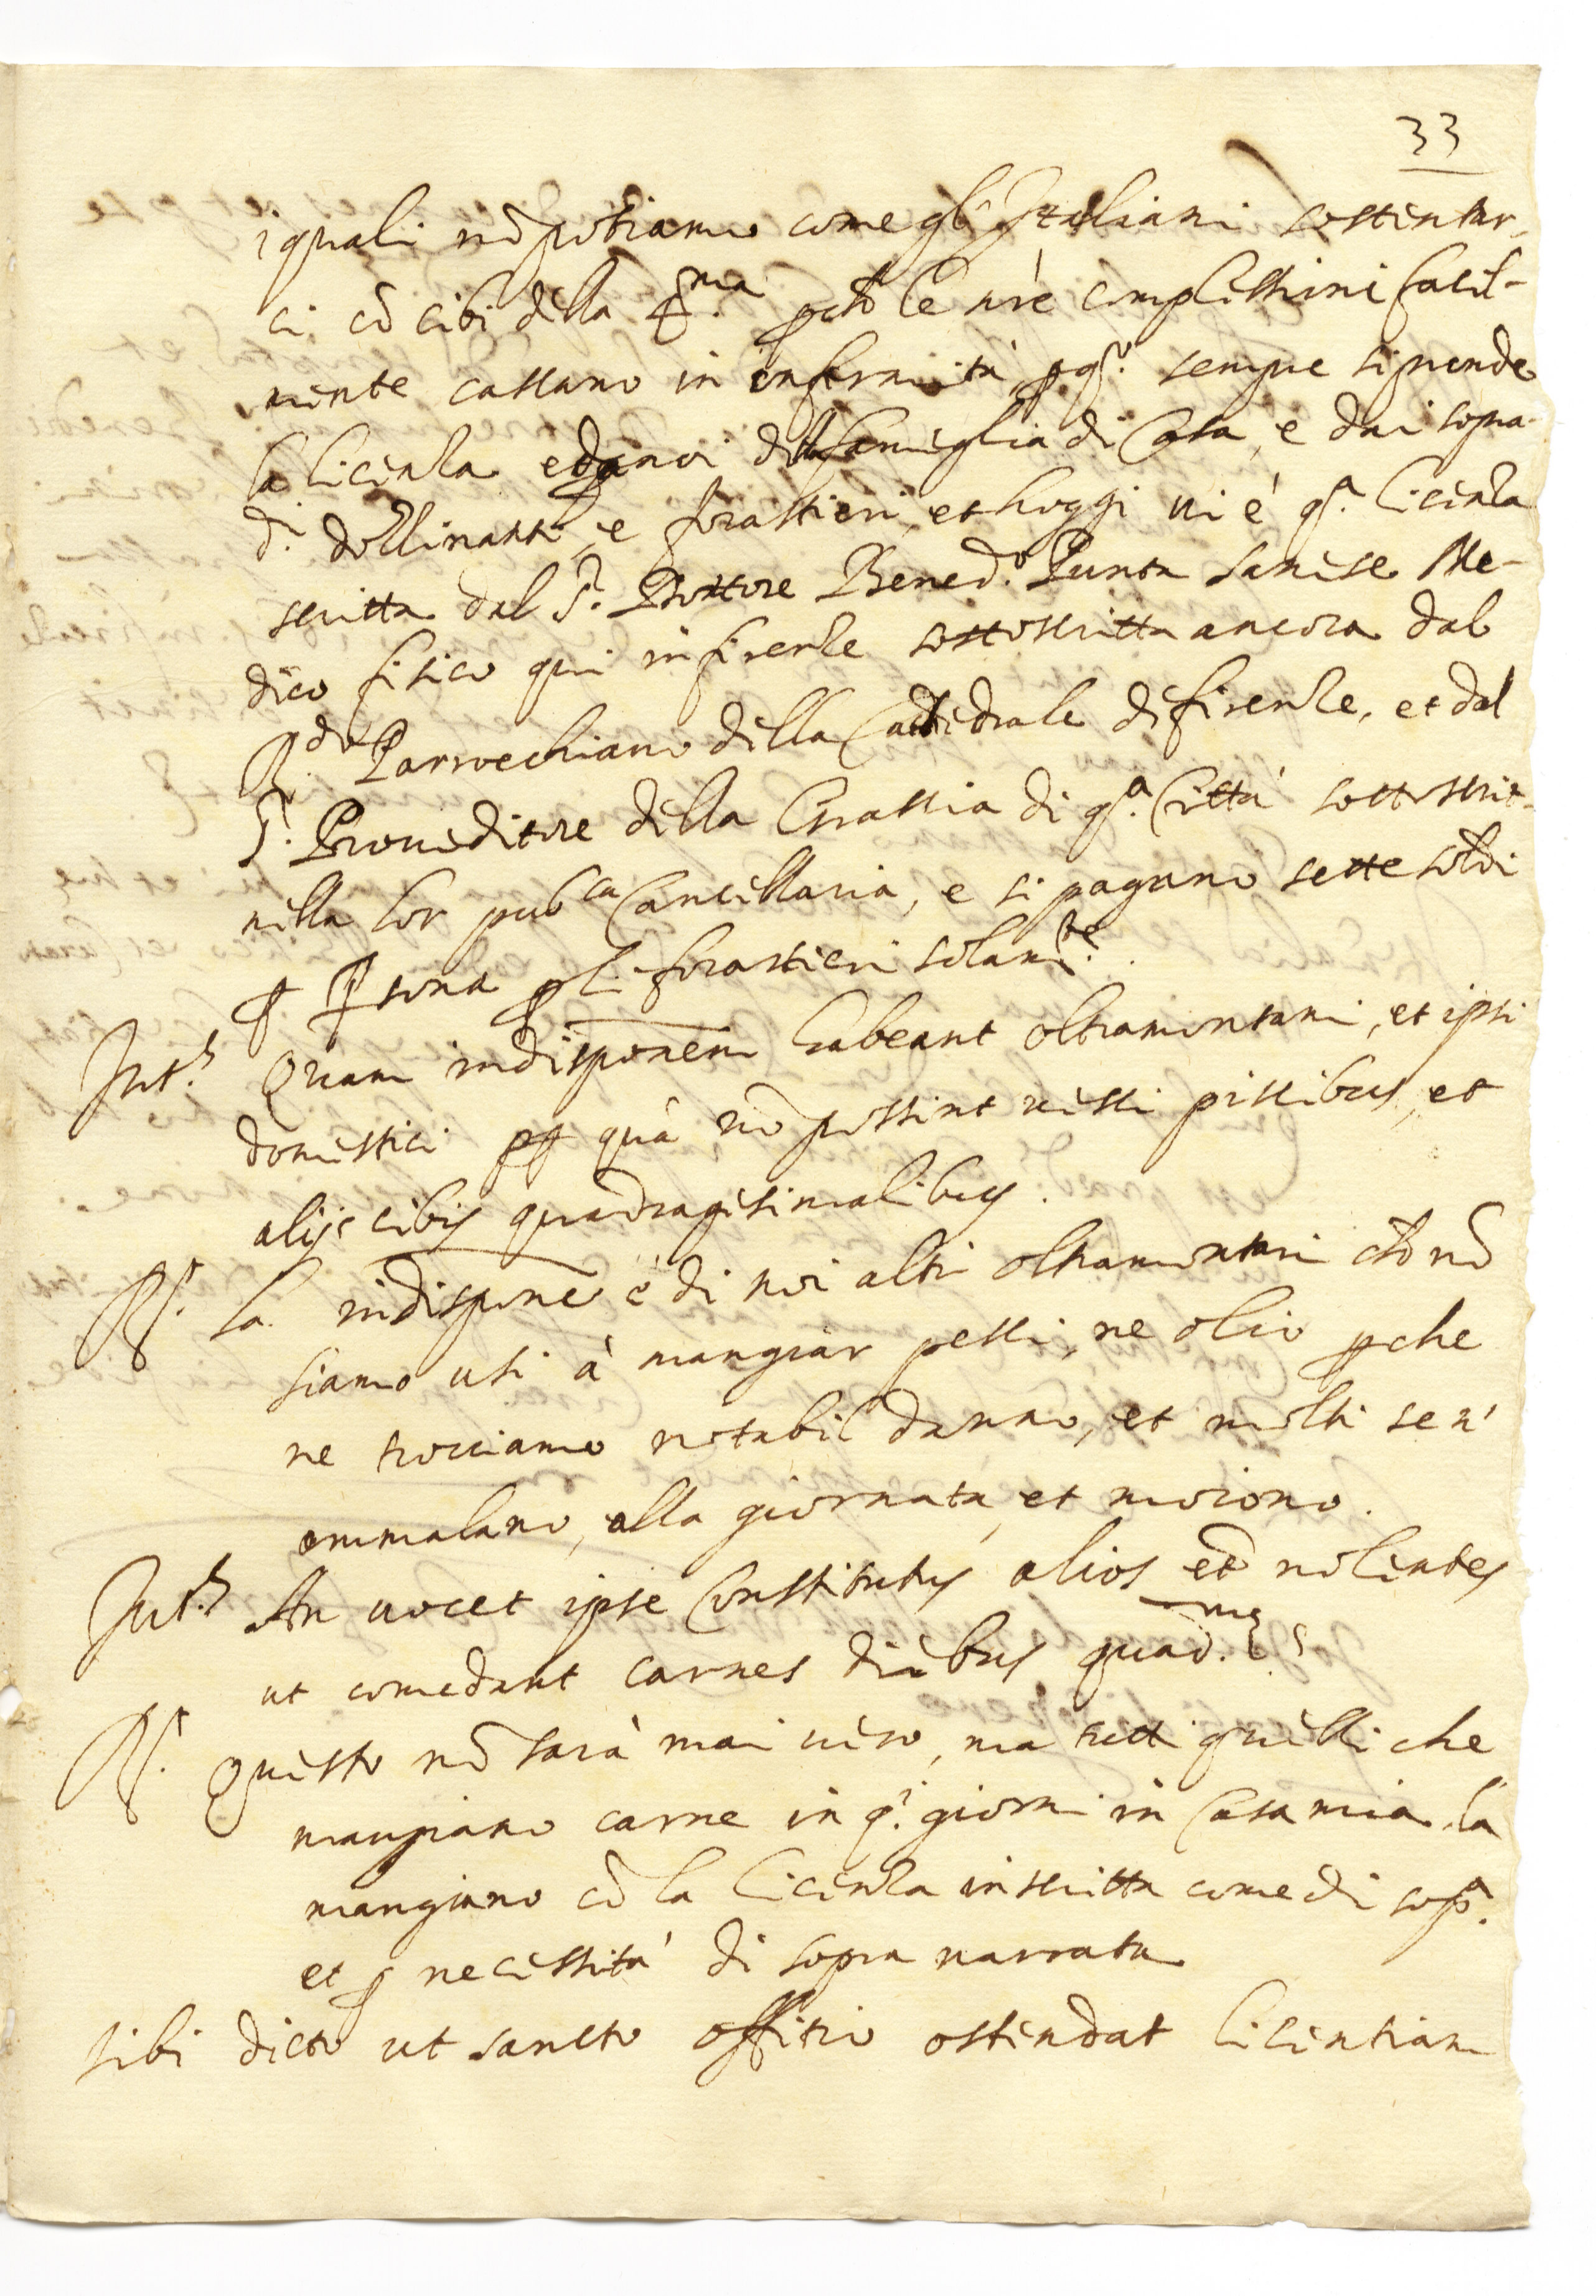 33
i quali nõ potiamo come gl' Italiani sostentar-
ci cõ cibi della q.ma, pchè le nr̃e complessioni facil-
mente cascano in infermità, p q.o sempre si prende
la licenza e da noi della famiglia di Casa, e dai sopra-
d.i e forastieri, et hoggi vi è q.a licenza
scritta dal S.r Dottore Bened.o Punta Sanese Me-
dico fisico qui in firenze sottoscritta ancora dal
R.do Parrocchiano della Cattedrale di firenze, et dal
S.r Proveditore della Grassia di q.a Città sottoscrit-
nella lor pub.ca Cancellaria, e si pagano sette soldi
p psona p li forastieri solam.te.
Int.s Quam indisponem habeant oltramontani, et ipsi
domestici pp quã nõ possint vesci piscibus, et
alijs cibis quadragesimalibus.
R.t La indispone è di noi altri oltramontani chè nõ
siamo usi à mangiar pesci, ne olio pche
ne trovciamo notabil danno, et molti se n'
ammalano, alla giornata, et morono.
Int.s An vocet ipse Constitutus alios et nolentes
ut comedant carnes diebus quad.mes
R.t Questo nõ sarà mai vero, ma tutti quelli che
mangiano carne in q.i giorni in Casa mia, la
mangiano cõ la licenza in scritta come di sop.a
et p necessità di sopra narrata
sibi dicto ut sancto offitio ostendat licentiam